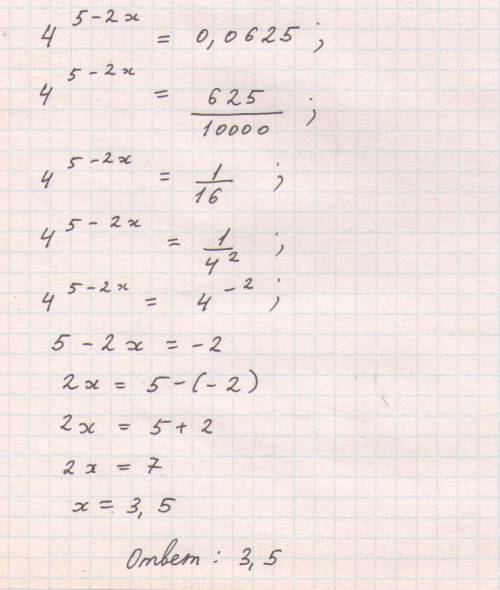 4^(5-2x) = 0,0625 ;
4^(5-2x) = 625/10000 ;
4^(5-2x) = 1/16 ;
4^(5-2x) = 1/4^2 ;
4^(5-2x) = 4^(-2) ;
5 - 2x = -2
2x = 5-(-2)
2x = 5+2
2x = 7
x = 3,5
Ответ: 3,5